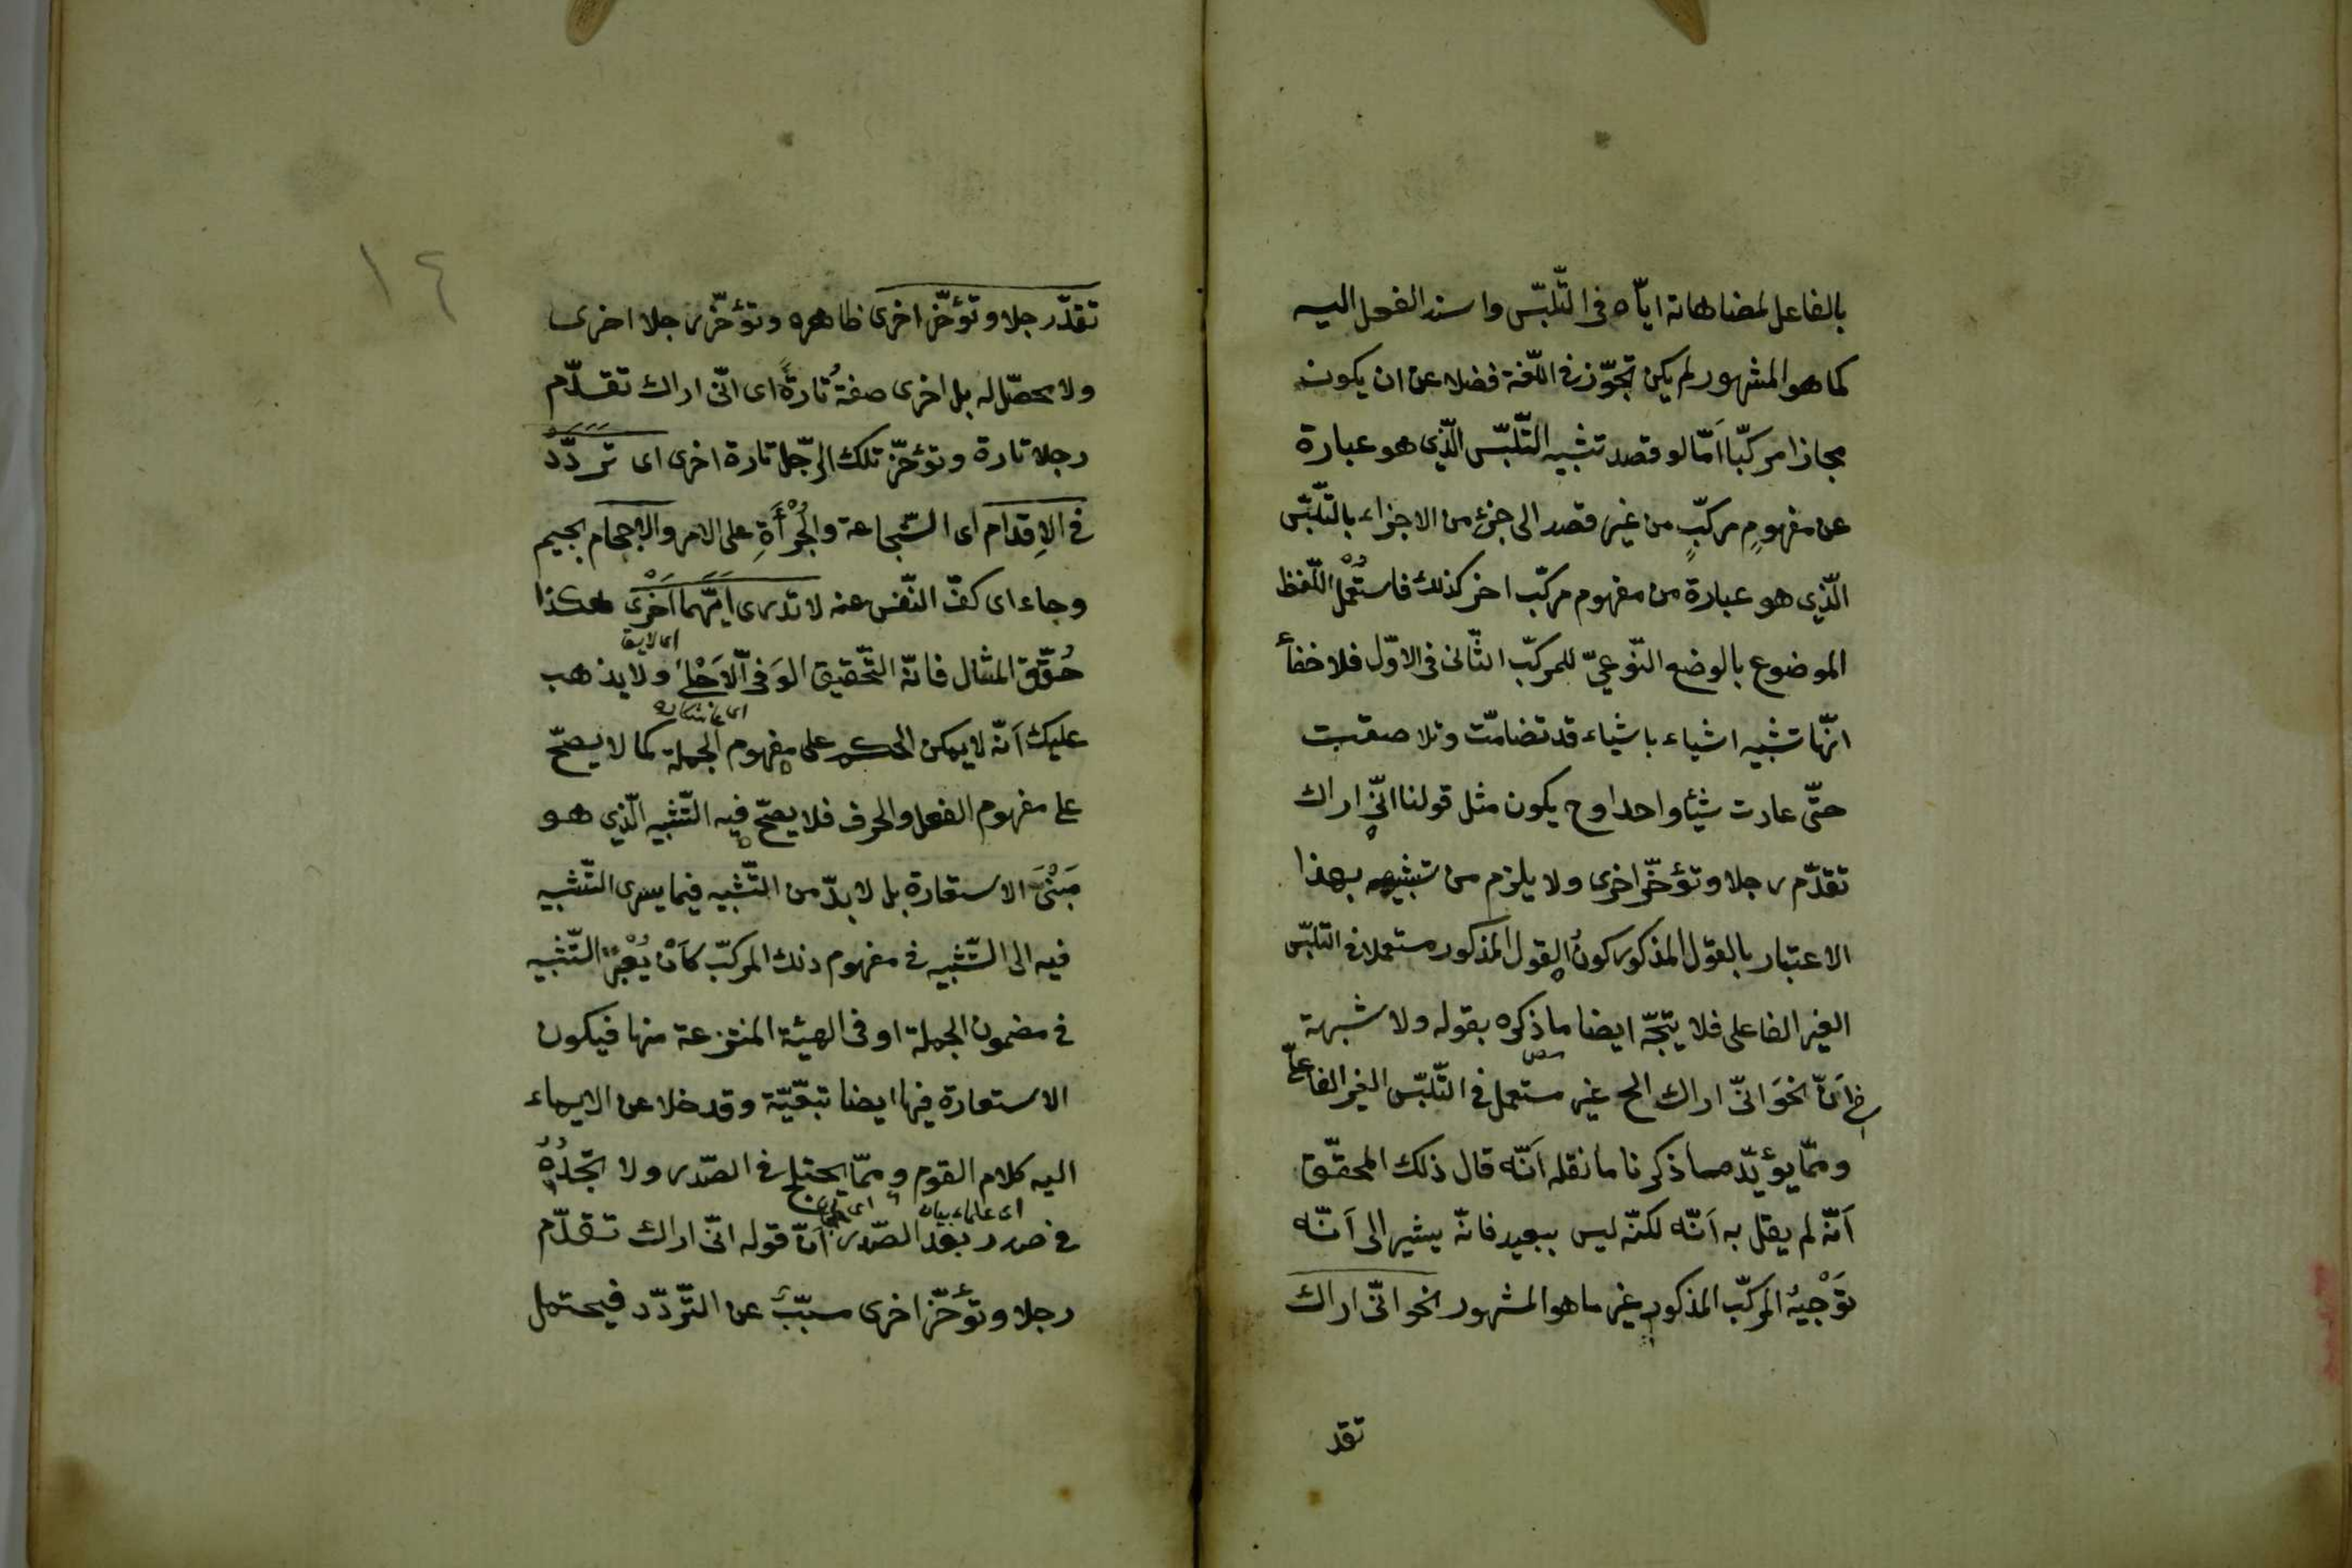 بالفاعل لمضاهاته ايّاه فى التّلبّس واسند الفعل اليه
كما هو المشهور لم يكن تجوّز فى اللّغة فضلا عن ان يكون
مجازا مركّبا اَمّا لو قصد تشبيه التّلبّس الّذى هو عبارة
عن مفهومٍ مركّبٍ من غير قصد الى جزء من الاجزاء بالتّلبّس
الّذى هو عبارة من مفهوم مركّب اخر كذلك فاستُعْمل اللّفظ
الموضوع بالوضع النّوعىّ للمركّب الثّانى فى الاوّل فلا خفأ
انّها تشبيه اشياء باشياء قد تضامّت وتلاصقت
حتّى عادت شيئا واحدا وح يكون مثل قولنا انّى اراك
تقدّم رجلا وتؤخّر اخرى ولا يلزم من تشبيهه بهذا
الاعتبار بالقول المذكور كونُ القول المذكور مستعملا فى التلبّس
الغير الفاعلى فلا يتجّه ايضا ما ذكره بقوله ولا شبهة
فى اَنّ نحوَ انّى اراك الخ غير مستعمل فى التّلبّس الغير الفاعلّى
وممّا يؤيّد ما ذكرنا ما نقله اَنّه قال ذلك المحقّق
اَنّه لم يقل به اَنّه لكنّه ليس ببعيد فانّه يشير الى اَنّه
تَوْجيهُ المركّب المذكور غير ما هو المشهور نحو انّى اراك
تقد
١٤
تقدّر رجلا وتؤخّر اخرى ظاهره وتؤخّر رجلا اخرى
ولا محصّل له بل اخرى صفةُ تارةً اى انّى اراك تقدّم
رجلا تارة وتؤخّر تلك الرّجل تارة اخرى اى تَرَدَّدَ
فى الاِقدام اى الشّجاعة والجُرْأَةِ على الامر والاِحجام بجيم
وجاء اى كفّ النّفس عنه لا تدرى ايّهما اَحْرَى هكذا
اى لايق
حُقّق المثال فانّه التّحقيق الوَفىّ الاَحْلى ولا يذهب
عليك اَنّه لا يمكن الحكم على مفهوم الجملة كما لا يصحّ
على مفهوم الفعل والحرف فلا يصحّ فيه التّشبيه الّذى هو
مَبْنَى الاستعارة بل لا بدّ من التّشبيه فيما يسرى التّشبيه
فيه الى التّشبيه فى مفهوم ذلك المركّب كاَنْ يُعْتبرَ التّشبيه
فى مضمون الجملة او فى الهيئة المنتزعة منها فيكون
الاستعارة فيها ايضا تبعّيّة وقد خلا عن الايماء
اليه كلام القوم وممّا يختلج فى الصّدر ولا تجدُهُ
اى علماء بيان
فى صدر بعد الصّدر اَنّ قوله انّى اراك تقدّم
رجلا وتؤخّر اخرى مسبّبٌ عن التّردّد فيحتمل